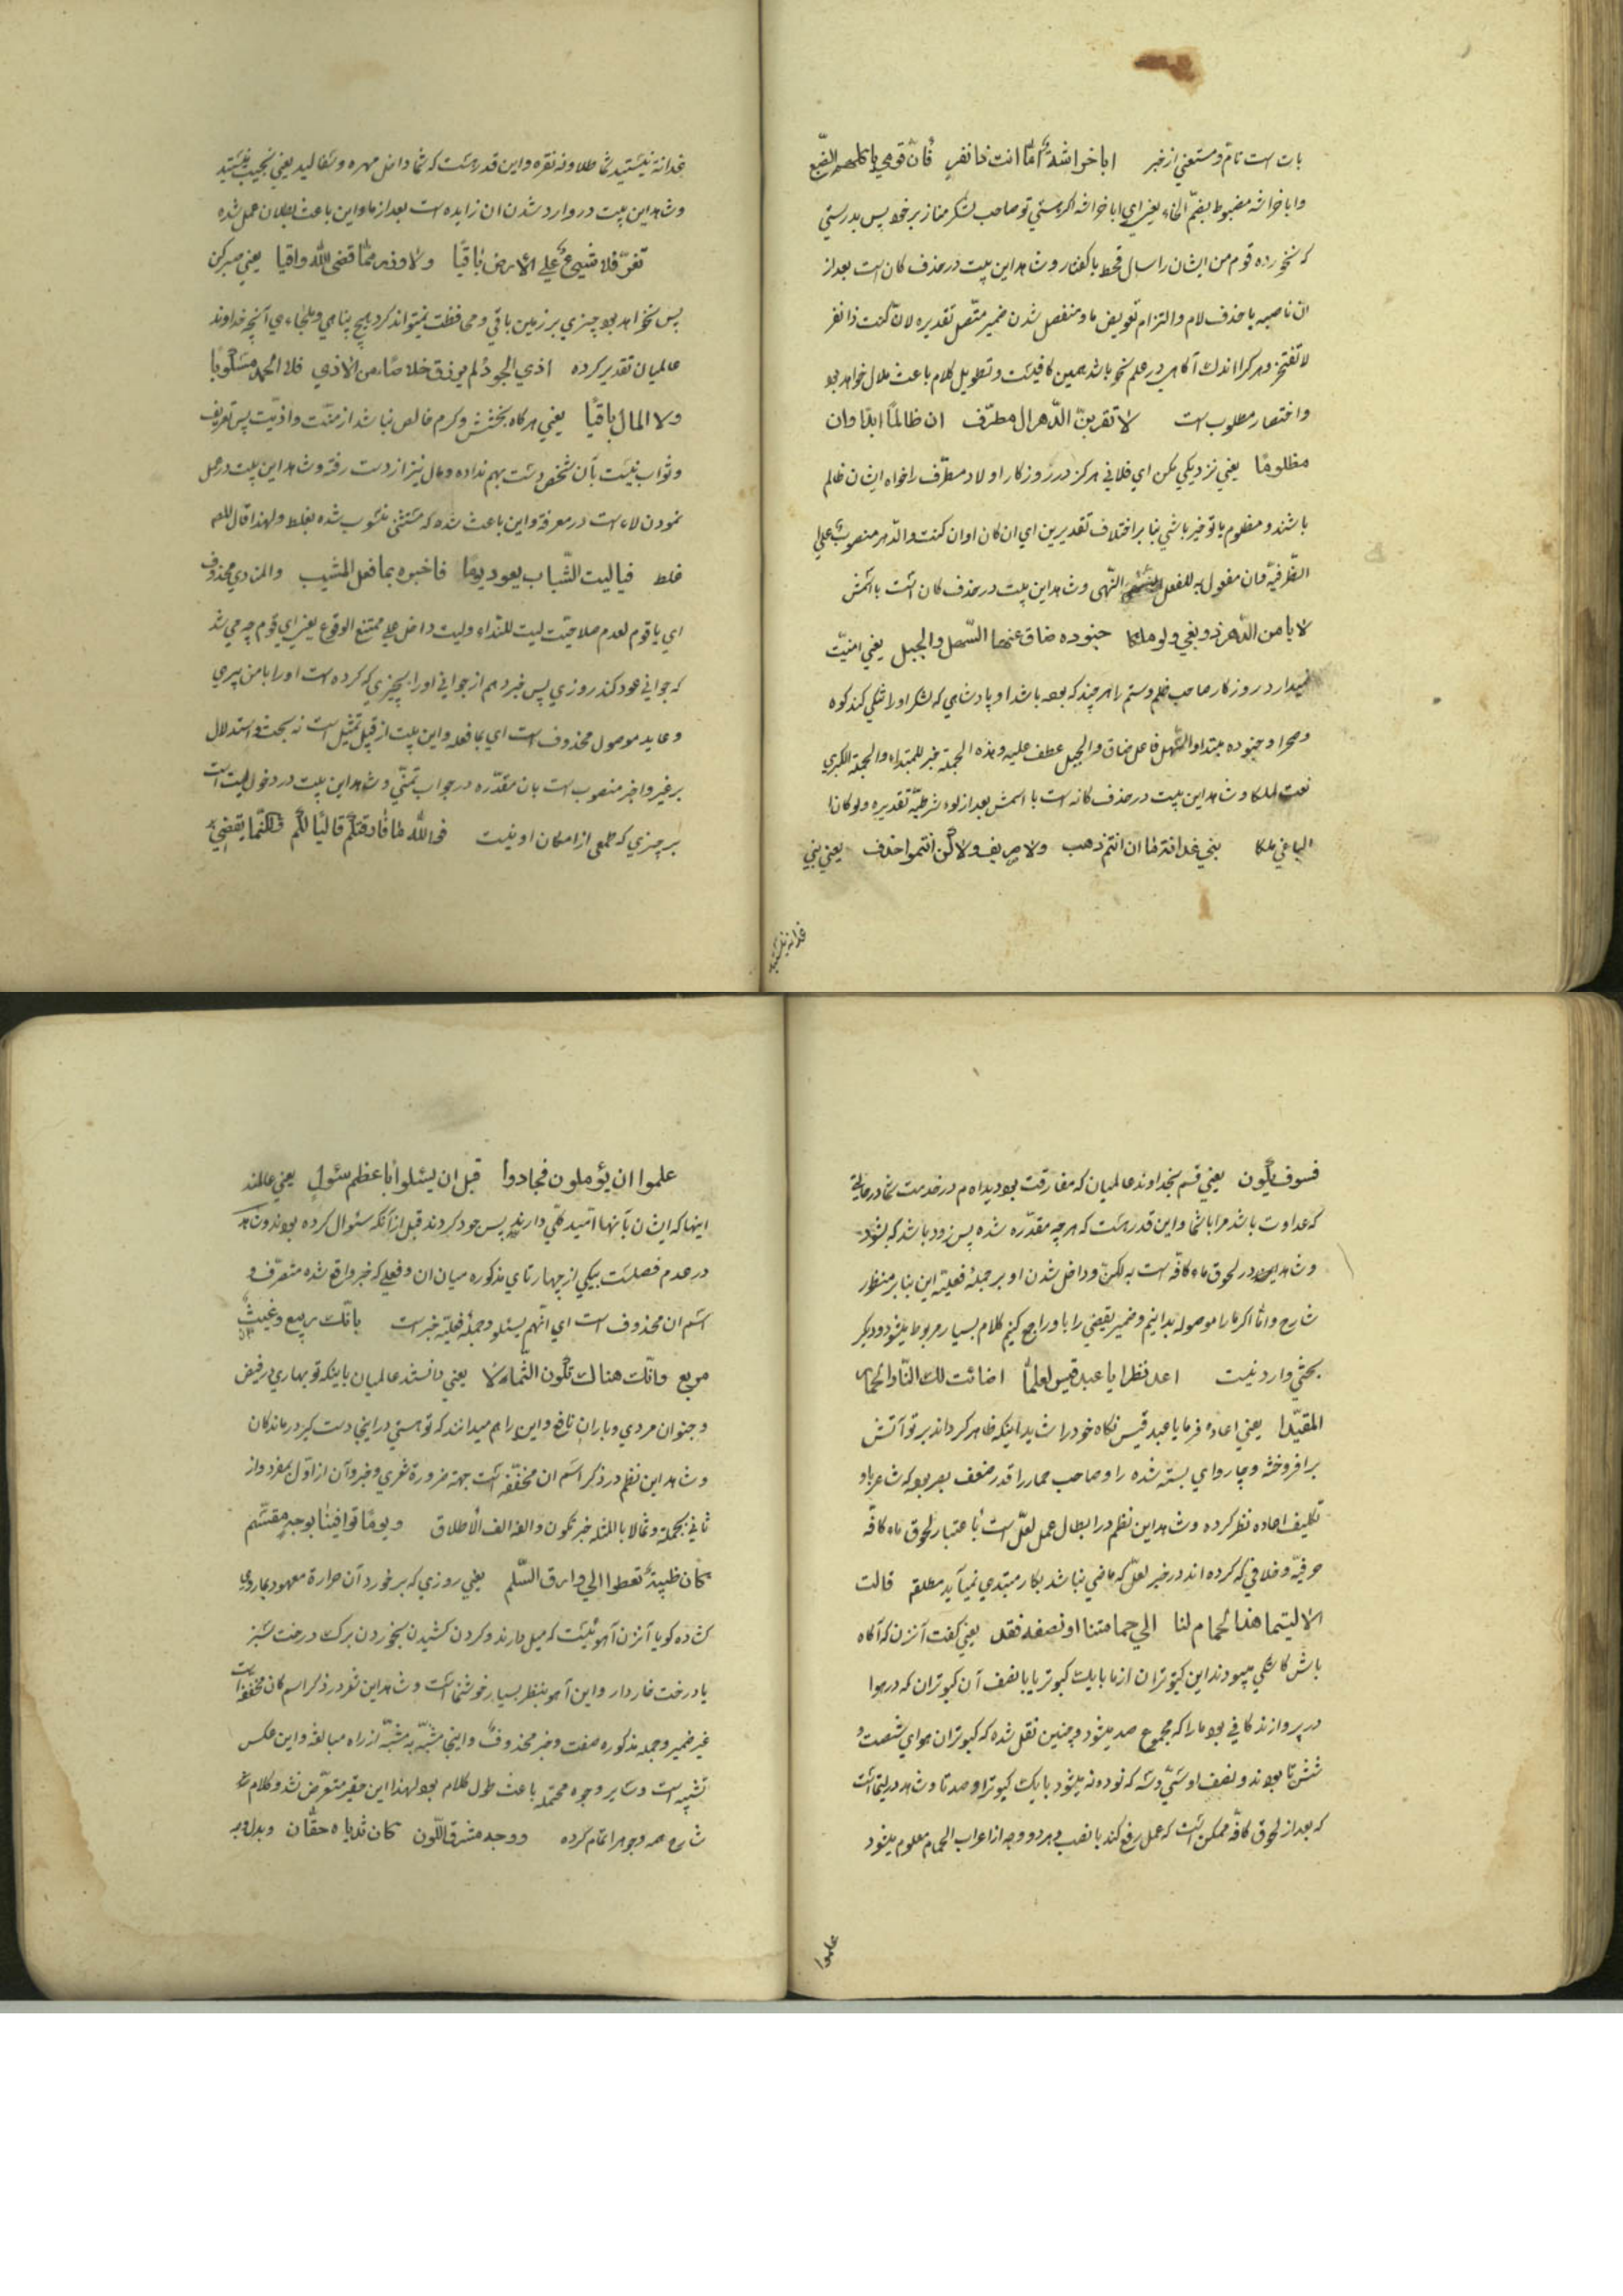 بات است تام و مستغنی از خبر ابا خراشة اما انت ذا نفر فان قومی لم تاکلهم الضبع
و ابا خراشه مضبوط بضم الخاء یعنی ای ابا خراشه اگر هستی تو صاحب لشکر مناز بر خود پس بدرستی
که نخورده قوم من ایشان را سال قحط با کفتار و شاهد این بیت در حذف کان است بعد از
ان ناصبه با حذف لام و التزام تعویض ما و منفصل شدن ضمیر متصل تقدیره لان کنت ذا نفر
لا تفتخر و هر کرا اندک آگاهی در علم نحو باشد همین کافیست و تطویل کلام باعث ملال خواهد بود
و اختصار مطلوب است لا تقربن الدهر ال مطرف ان ظالمًا ابدًا و ان
مظلومًا یعنی نزدیکی مکن ای فلانی هرگز در روزگار اولاد مطرف را خواه ایشان ظالم
باشند و مظلوم یا تو خیر باشی بنا بر اختلاف تقدیرین ای ان کان او ان کنت و الدهر منصوب علی
الظرفیة و ان مفعول به للفعل النهی و شاهد این بیت در حذف کان است با اسمش
لا یامن الدهر ذو بغی و لو ملکا جنوده ضاق عنها السهل و الجبل یعنی امنیت
نمیدارد روزگار صاحب ظلم و ستم را هر چند که بوده باشد او پادشاهی که لشکر او را تنگی کند کوه
و صحرا و جنوده مبتدا و السهل فاعل ضاق و الجبل عطف علیه و هذه الجملة خبر للمبتداء و الجملة الکبری
نعت لملکا و شاهد این بیت در حذف کانه است با اسمش بعد از لوء شرطیة تقدیره و لو کان
الباغی ملکا بنی غدانة ما ان انتم ذهب و لا صریف و لا کن انتموا خذف یعنی بنی
غدانه نیستید
غدانة نیستید شما طلا و نه نقره و این قدر هست که شما داخل مهره و سفالید یعنی نجیب نیستید
و شاهد این بیت در وارد شدن ان زایده است بعد از ما و این باعث بطلان عمل شده
تعزّ فلا شیئ علی الارض باقیًا و لا وزر مما قضی الله واقیا یعنی صبر کن
پس نخواهد بود چیزی بر زمین باقی و محافظت نمیتواند کرد هیچ پناهی و ملجاءی آنچه خداوند
عالمیان تقدیر کرده اذی الجود لم یرزق خلاصًا من الاذی فلا الحمد مکسوبا
و لا المال باقیًا یعنی هر گاه بخشش و کرم خالص نباشد از منّت و اذیت پس تعریف
و ثواب نیست بآن شخص دست بهم نداده و مال نیز از دست رفته و شاهد این بیت در عمل
نمودن لاء است در معرفة و این باعث شده که متنبی منسوب شده بغلط و لهذا قال للم
غلط فیا لیت الشباب یعود یومًا فاخبره بما فعل المشیب و المنادی محذوف
ای یا قوم لعدم صلاحیت لیت للنداء و لیت داخل علی ممتنع الوقوع یعنی ای قوم چه می شد
که جوانی عود کند روزی پس خبر دهم از جوانی او را بچیزی که کرده است او را با من پیری
و عاید موصول محذوف است ای بما فعله و این بیت از قبیل تمثیل است نه بحث و استدلال
بر غیر و اخبر منصوب است بان مقدّره در جواب تمنّی و شاهد این بیت در دخول لیت است
بر چیزی که طمعی از امکان او نیست فوالله ما فارقتکم قالیًا لکم و لکنّما یقضی
فسوف یکون یعنی قسم بخداوند عالمیان که مفارقت بودیدام در خدمت شما در حالتی
که عداوت باشد مرا با شما و این قدر هست که هر چه مقدّره شده پس زود باشد که بشود
و شاهد این در لحوق ماء کافّه است به لکنّ و داخل شدن او بر جملهٔ فعلیّة این بنا بر منظور
شارح و امّا اگر ما را موصوله بدانیم و ضمیر یقضی را باو راجع کنیم کلام بسیار مربوط میشود و دیگر
بحثی وارد نیست اعد نظرا یا عبد قیس لعلّما اضائت لک النار الحمار
المقیّدا یعنی اعاده فرما یا عبد قیس نگاه خود را شاید اینکه ظاهر گرداند بر تو آتش
بر افروخته و چاروای بسته شده را و صاحب حمار را قدر ضعف بصر بوده که شاعر باو
تکلیف اعاده نظر کرده و شاهد این نظم در ابطال عمل لعلّ است باعتبار لحوق ماء کافّه
حرفیّه و خلافی که کرده اند در خبر لعلّ که ماضی نباشد بکار مبتدی نمی آید مطلقه قالت
الا لیتما هذا الحمام لنا الی حمامتنا او نصفه فقد یعنی گفت آن زن که آگاه
باش کاشکی میبودند این کبوتران از ما با یک کبوتر یا با نصف آن کبوتران که در هوا
در پروازند کافی بود ما را که مجموع صد میشود و چنین نقل شده که کبوتران هوای شصت و
شش تا بودند و نصف او سیّ و سه که نود و نه میشود با یک کبوتر او صد تا و شاهد در لیتما است
که بعد از لحوق کافّه ممکن است که عمل رفع کند یا نصب و هر دو وجه از اعراب الحمام معلوم میشود
علموا
علموا ان یؤملون فجادوا قبل ان یسئلوا باعظم سئول یعنی عالمند
اینها که ایشان بآنها امّید کلّی دارند پس جود کردند قبل از آنکه سئوال کرده بودند و شاهد
در عدم فصلست بیکی از چهار تای مذکوره میان ان و فعلی که خبر واقع شده متصرّف و
اسم ان محذوف است ای انّهم یسئلو و جملهٔ فعلیّه خبر است بانّک ربیع و غیث
مریع و انّک هناک تکون الثمالا یعنی دانستند عالمیان باینکه تو بهاری در فیض
و جنوان مردی و باران نافع و این را هم میدانند که تو هستی در اینجا دست گیر درماندگان
و شاهد این نظم در ذکر اسم ان مخفّفه است جهة ضرورة شعری و خبر آن از اوّل بمفرد و از
ثانی بجملة و ثمالا بالمثلثه خبر تکون و الفه الف الاطلاق و یومًا توافینا بوجهٍ مقسّم
کان ظبیةً تعطوا الی وارق السّلم یعنی روزی که بر خورد آن حرارة معهود بما روی
گشاده گویا آن زن آهوئیست که میل دارند و گردن کشیدن بخوردن برک درخت سبز
یا درخت خاردار و این آهو بنظر بسیار خوشنما است و شاهد این شعر در ذکر اسم کان مخفّفه است
غیر ضمیر و جمله مذکوره صفت و خبر محذوف و اینجا مشبّه به مشبّه از راه مبالغه و این عکس
تشبیه است و سایر وجوه محتمله باعث طول کلام بود لهذا این حقیر متعرّض نشد و کلام
شارح همه وجوه را تمام کرده و وجه مشرق اللّون کان ثدیاه حقّان و بدل وجه